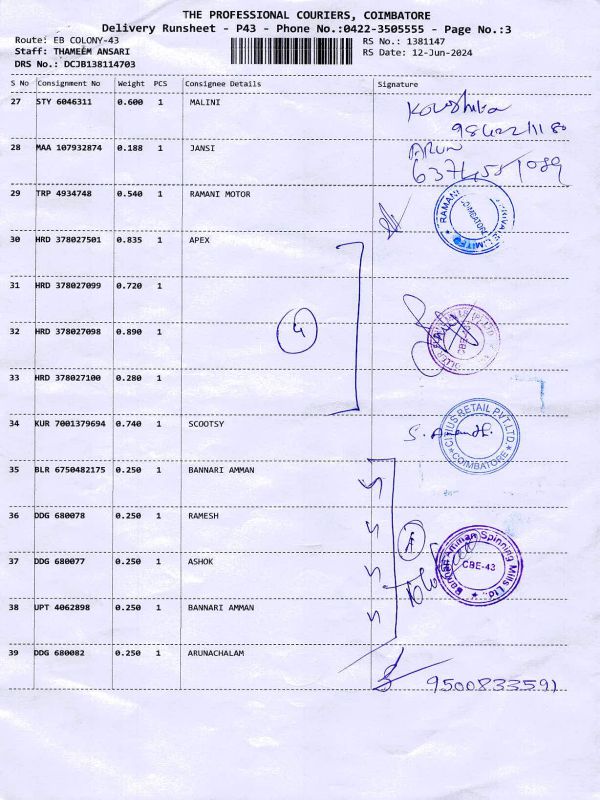 THE PROFESSIONAL COURIERS, COIMBATORE
Delivery Runsheet - P43 - Phone No.:0422-3505555 - Page No.:3
Route: EB COLONY-43 RS No.: 1381147
Staff: THAMEEM ANSARI RS Date: 12-Jun-2024
DRS No.: DCJB138114703
S No Consignment No Weight PCS Consignee Details Signature
27 STY 6046311 0.600 1 MALINI
28 MAA 107932874 0.188 1 JANSI ARUN
29 TRP 4934748 0.540 1 RAMANI MOTOR
30 HRD 378027501 0.835 1 APEX
31 HRD 378027099 0.720 1
32 HRD 378027098 0.890 1
4
33 HRD 378027100 0.280 1
34 KUR 7001379694 0.740 1 SCOOTSY
CIRIUS RETAIL PVT.LTD.
COIMBATORE
35 BLR 6750482175 0.250 1 BANNARI AMMAN
36 DDG 680078 0.250 1 RAMESH
37 DDG 680077 0.250 1 ASHOK
Bannari Amman Spinning Mills Ltd.
CBE-43
38 UPT 4062898 0.250 1 BANNARI AMMAN
39 DDG 680082 0.250 1 ARUNACHALAM
9500833591